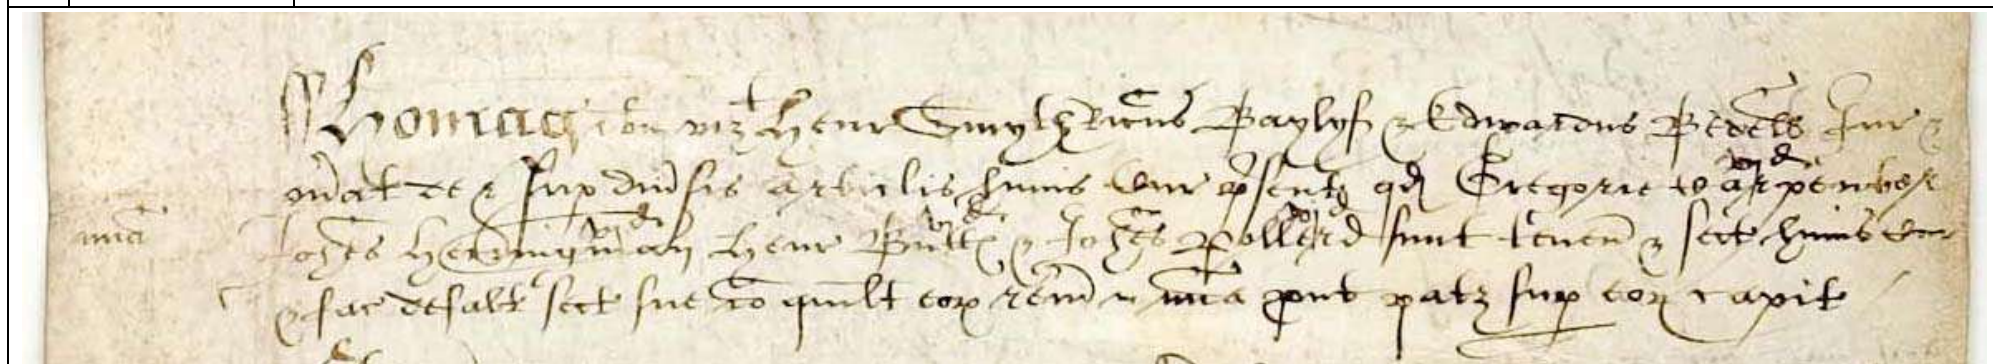 Homag ib[m] viz Henr Smyth Ricus Baylyf & Edwardus Bedells Jur &
on[er]at de & sup divsis articulis huius Cur p[re]sent qd Gregorie Carpenter
vj d
mia Johes Herringman Henr Butt & Johes Pollerd sunt tenen & sect huius Cur
vj d vj d
& fac defalt sect sue Io quilt eor rem in mia put patz sup eor capit